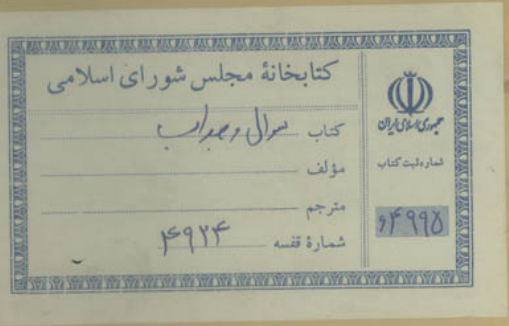 کتابخانهٔ مجلس شورای اسلامی
کتاب سوال و جواب
مؤلف
مترجم
شمارهٔ قفسه ۴۹۲۴
جمهوری اسلامی ایران
شماره ثبت کتاب
۶۴۹۹۵